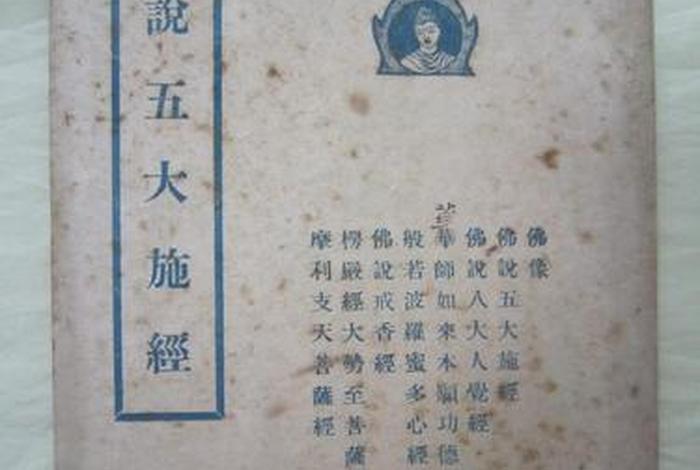 佛像
佛說五大施經
佛說八大人覺經
華師如來本願功德
般若波羅蜜多心經
佛說戒香經
楞嚴經大勢至菩薩
摩利支天菩薩經
說五大施經